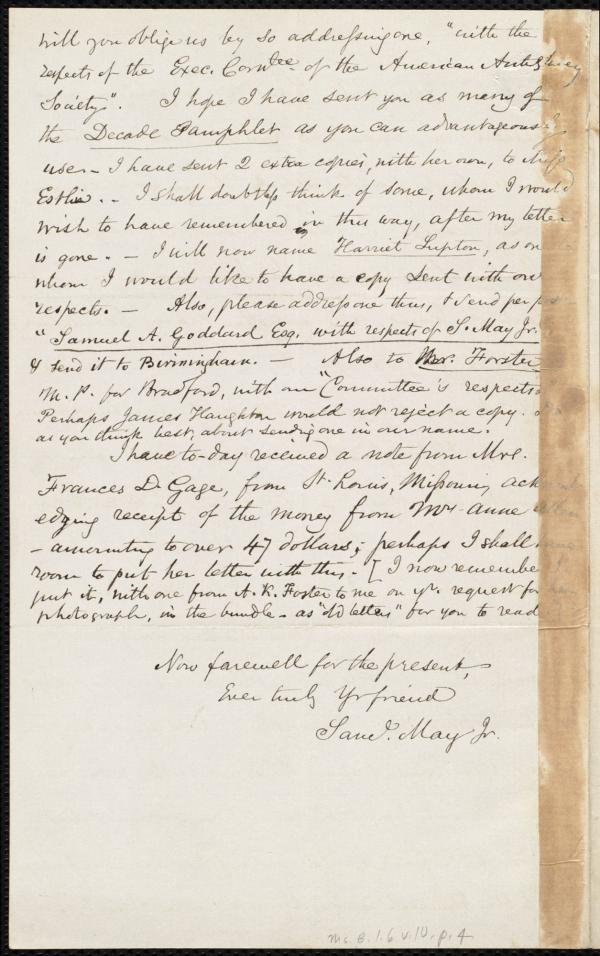 will you oblige us by so addressing one, "with the
respects of the Exec. Com^tee. of the American Anti-Slavery
Society". I hope I have sent you as many of
the Decade Pamphlet as you can advantageously
use. - I have sent 2 extra copies, with her own, to Miss
Estlin. - I shall doubtless think of some, whom I would
wish to have remembered in this way, after my letter
is gone. - I will now name Harriet Lupton, as one
whom I would like to have a copy sent with our
respects. - Also, please address one thus, & send per
"Samuel A. Goddard Esq. with respects of S. May Jr.
& send it to Birmingham. - Also to Mr. Forster
M. P. for Bradford, with our "Committee's respects"
Perhaps James Haughton would not reject a copy.
as you think best, about sending one in our name.
I have to-day received a note from Mrs.
Frances D. Gage, from St. Louis, Missouri,
edging receipt of the money from Mrs. Anne
- amounting to over 47 dollars; perhaps I shall
room to put her letter with this. - [I now remember I
put it, with one from A. K. Foster to me on yr. request for her
photograph, in the bundle - as "old letters" for you to read
Now farewell for the present,
Ever truly Yr friend
Saml. May Jr.
Ms. B. 1. 6 v. 10. p. 4